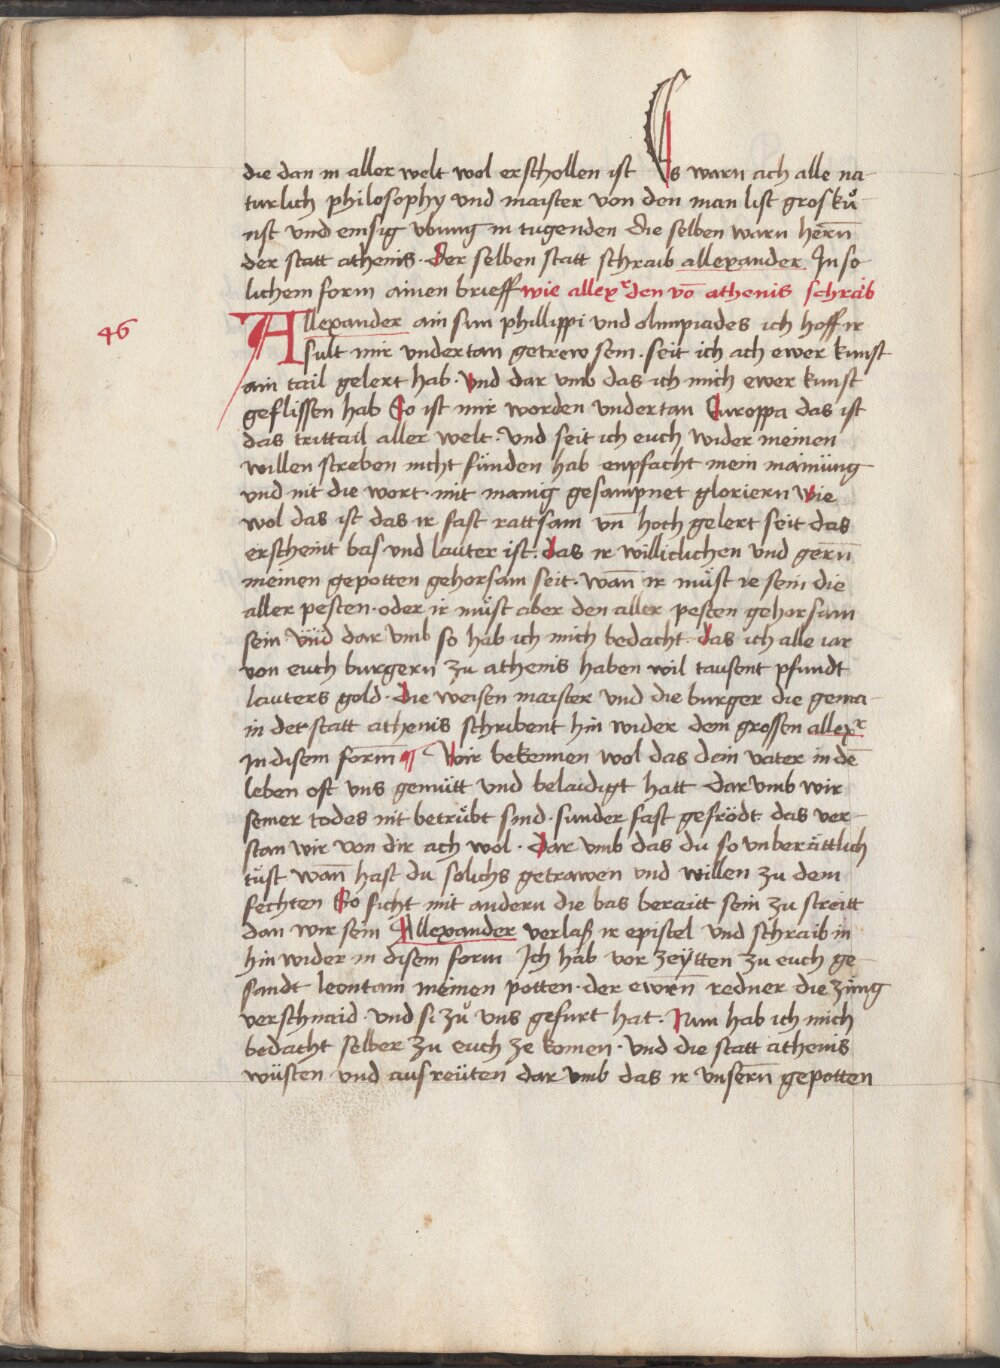 die dan in aller welt wol erschollen ist Es warn ach alle na-
turlich philosophy und maister von den man list gros ků-
nst und emsig ubung in tugenden die selben warn hern̄
der statt athenis. Der selben statt schraib allexander In so
lichem form ainen brieff wie allexr den vō athenis schraib
46
Allexander ain sun phillippi und olimpiades ich hoff ir
sult mir undertan getrew sein. seit ich ach ewer kunst
ain tail gelert hab. Und dar umb das ich mich ewer kunst
geflissen hab So ist mir worden undertan Europpa das ist
das trittail aller welt. Und seit ich euch wider meinen
willen streben nicht fünden hab enpfacht mein mainüng
und nit die wort. mit manig gesampnet gloriern Wie
wol das ist das ir fast rattsam un̄ hoch gelert seit das
erscheint bas und lauter ist. das ir williclichen und gern̄
meinen gepotten gehorsam seit. wan̄ ir müst ie sein die
aller pesten. oder ir müst aber den aller pesten gehorsam
sein Und dar umb so hab ich mich bedacht. das ich alle iar
von euch burgern zu athenis haben wil tausent pfundt
lauters gold. die weisen maister und die burger die gema-
in der statt athenis schribent hin wider dem grossen allexr
In disem form̄ ¶ Wir bekennen wol das dein vater in dē
leben oft uns gemütt und belaidigt hatt dar umb wir
seiner todes nit betrübt sind. sunder fast gefrödt das ver-
stan wir von dir ach wol. Dar umb das du so unberättlich
tüst wan̄ hast du solichs getrawen und willen zu dem
fechten So ficht mit andern die bas beraitt sein zu streitt
dan wir sein Allexander verlaß ir epistel und schraib in
hin wider in disem form Ich hab vor zeÿtten zu euch ge-
sandt leontam meinen potten. der ewrn̄ redner die züng
verschnaid. und si zů uns gefurt hat. Nun hab ich mich
bedacht selber zu euch ze komen. und die statt athenis
wüsten und aus reüten dar umb das ir unsern̄ gepotten